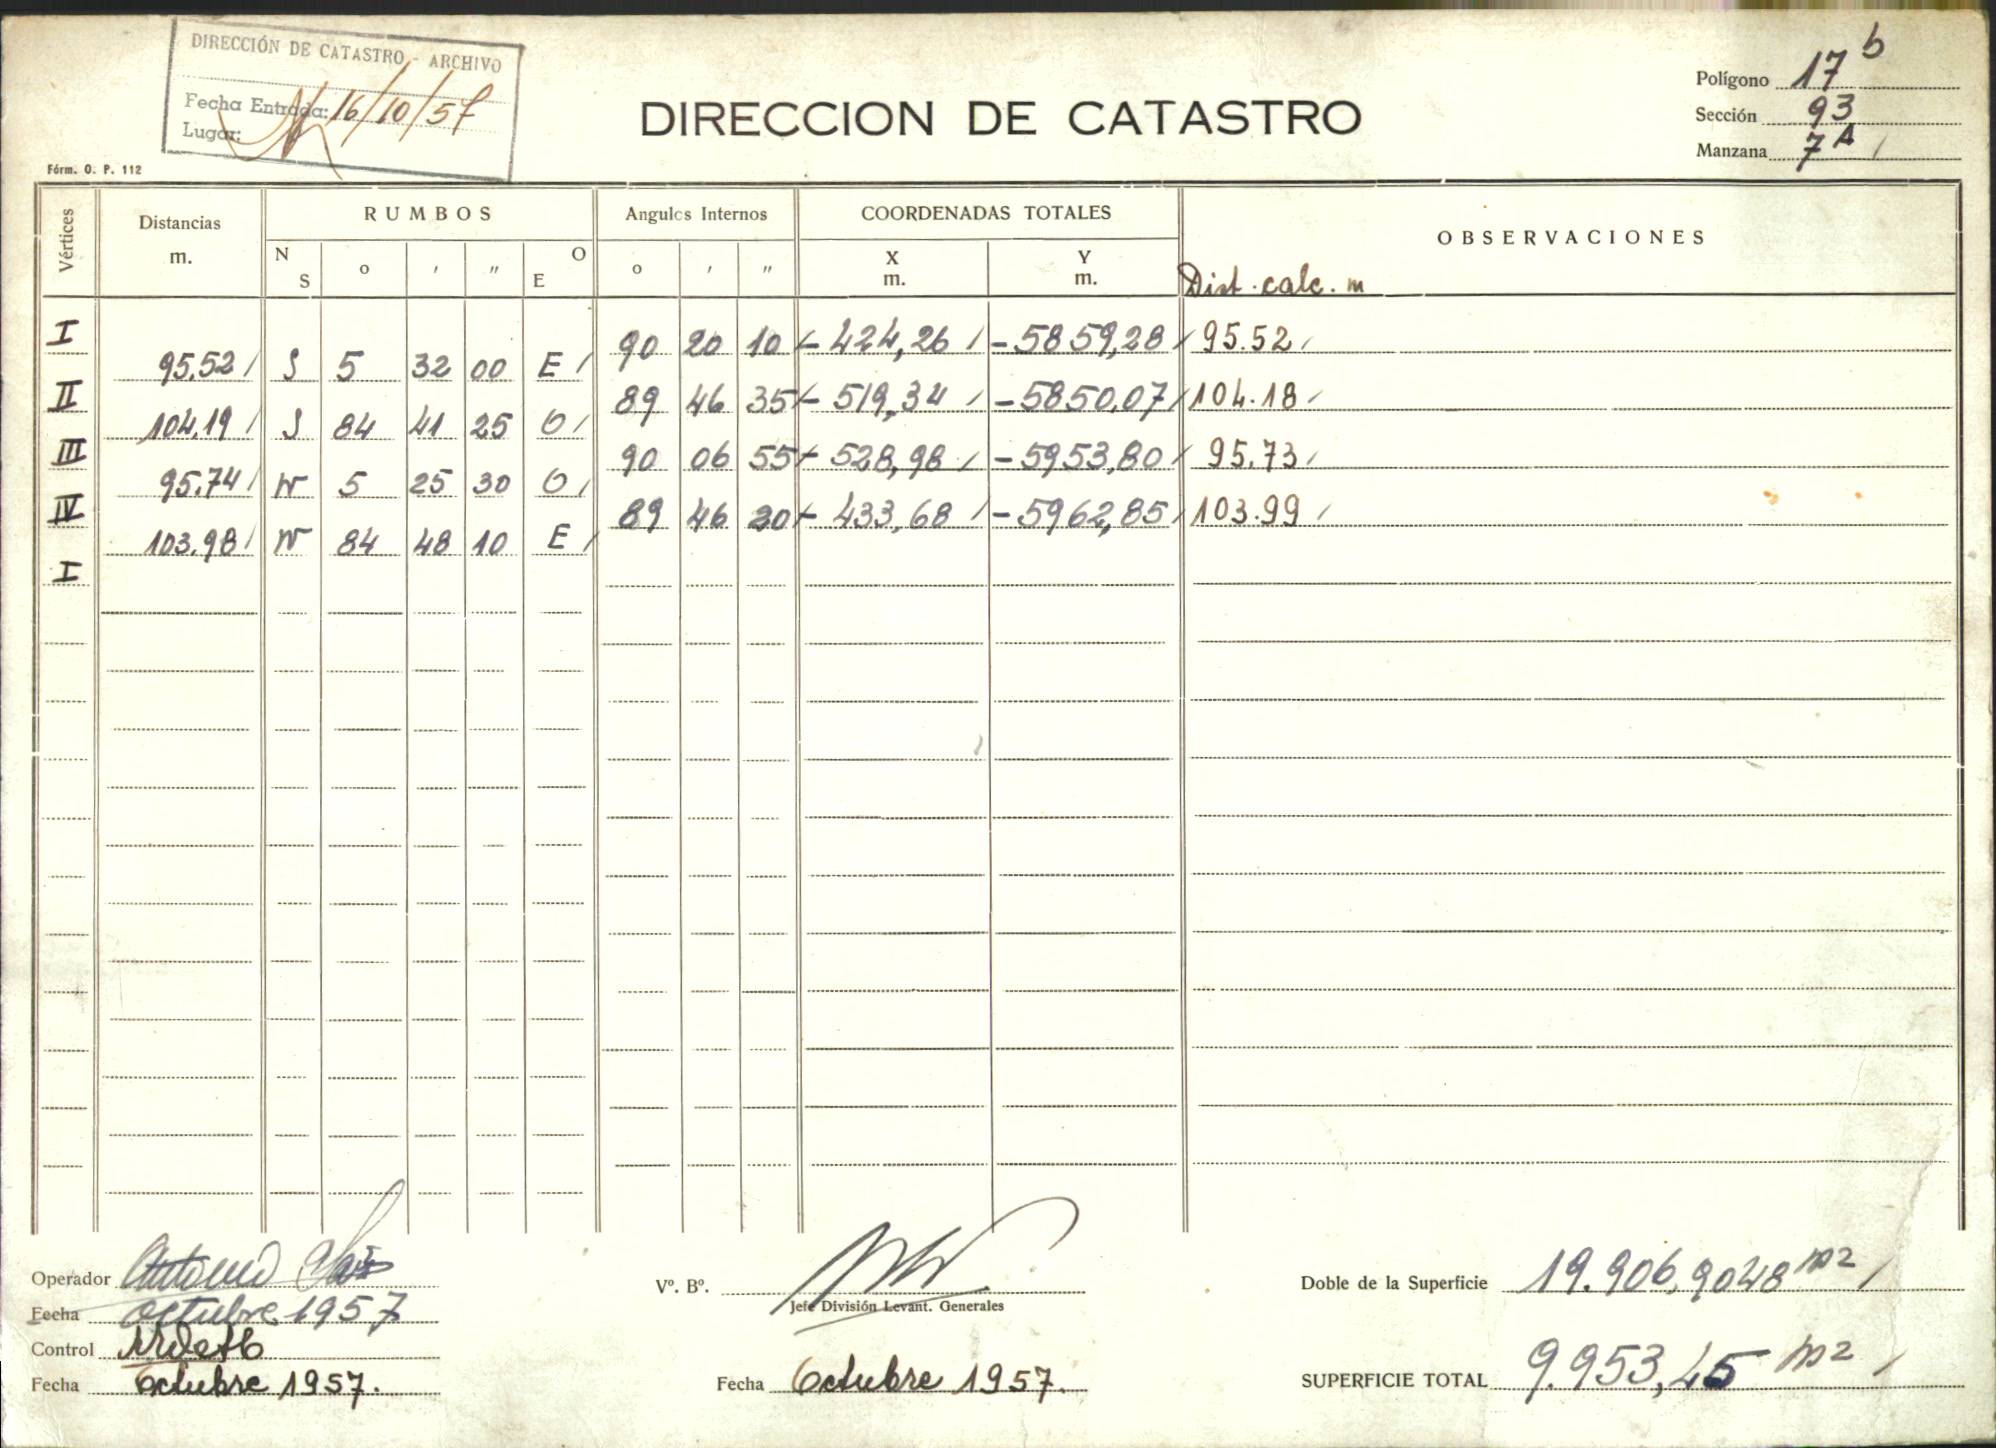 DIRECCIÓN DE CATASTRO - ARCHIVO
Fecha Entrada: 16/10/57
Lugar:
DIRECCION DE CATASTRO
Polígono 17 b
Sección 93
Manzana 7A
Fórm. O. P. 112
Vértices Distancias m. RUMBOS Angulos Internos COORDENADAS TOTALES OBSERVACIONES
N S o ' " E O o ' " X m. Y m. Dist. calc. m
I 90 20 10 - 424,26 - 5859,28 95.52
95.52 S 5 32 00 E
II 89 46 35 - 519,34 - 5850,07 104.18
104.19 S 84 41 25 O
III 90 06 55 - 528,98 - 5953,80 95.73
95.74 N 5 25 30 O
IV 89 46 20 - 433,68 - 5962,85 103.99
103.98 N 84 48 10 E
I
Operador Antonio
Fecha octubre 1957
Control
Fecha Octubre 1957.
Vº. Bº.
Jefe División Levant. Generales
Fecha Octubre 1957.
Doble de la Superficie 19.906,9048 m2
SUPERFICIE TOTAL 9.953,45 m2